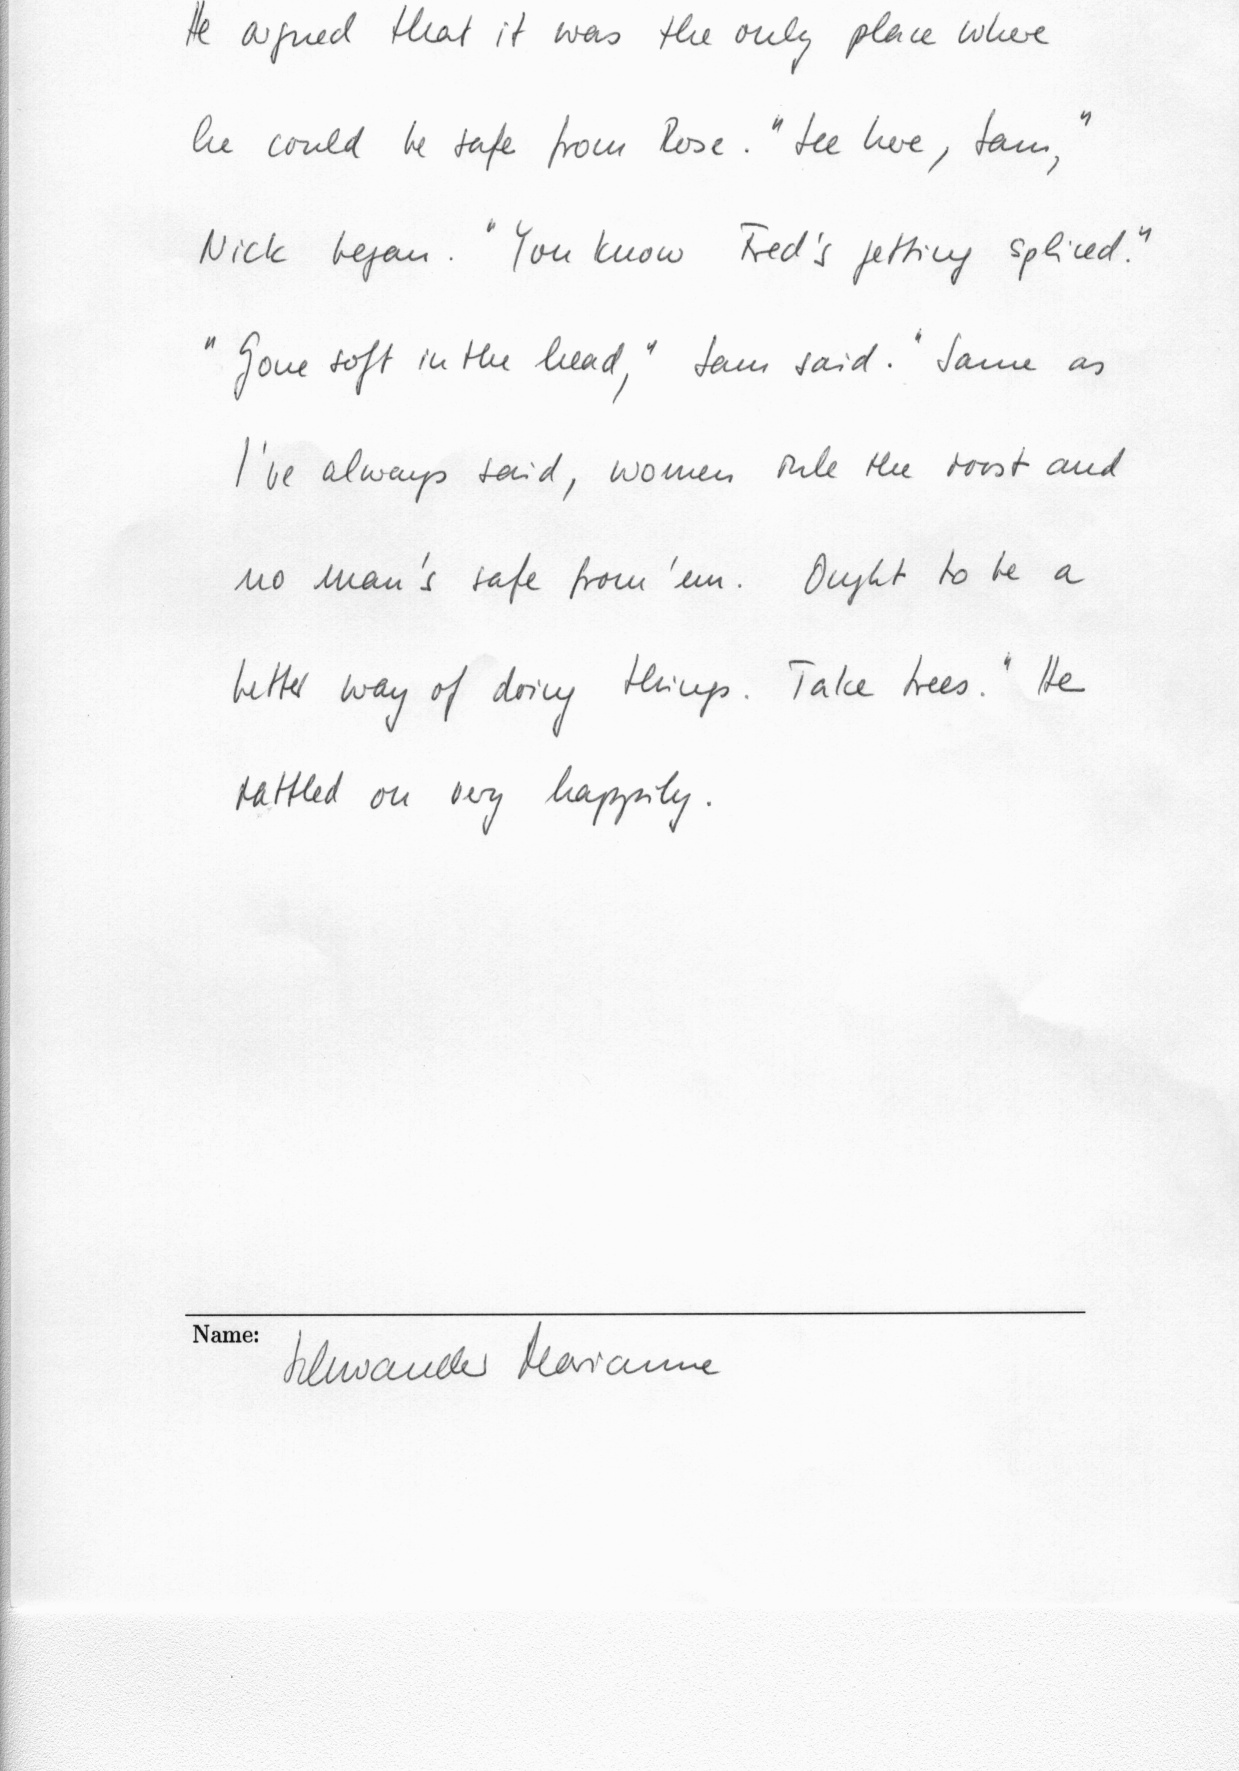 He argued that it was the only place where
he could be safe from Rose. "See here, Sam,"
Nick began. "You know Fred's getting spliced."
"Gone soft in the head," Sam said. "Same as
I've always said, women rule the roost and
no man's safe from 'em. Ought to be a
better way of doing things. Take trees." He
rattled on very happily.
Name: Schwander Marianne